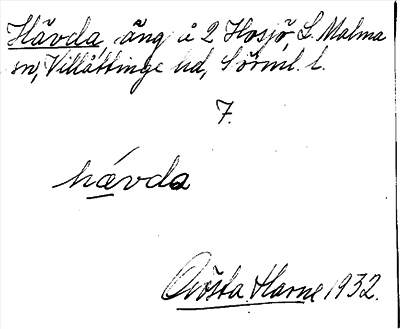 Hävda, äng å 2 Hosjö, L. Malma
sn, Villåttinge hd, Sörml. l.
7.
hävda
Gösta Harne 1932.